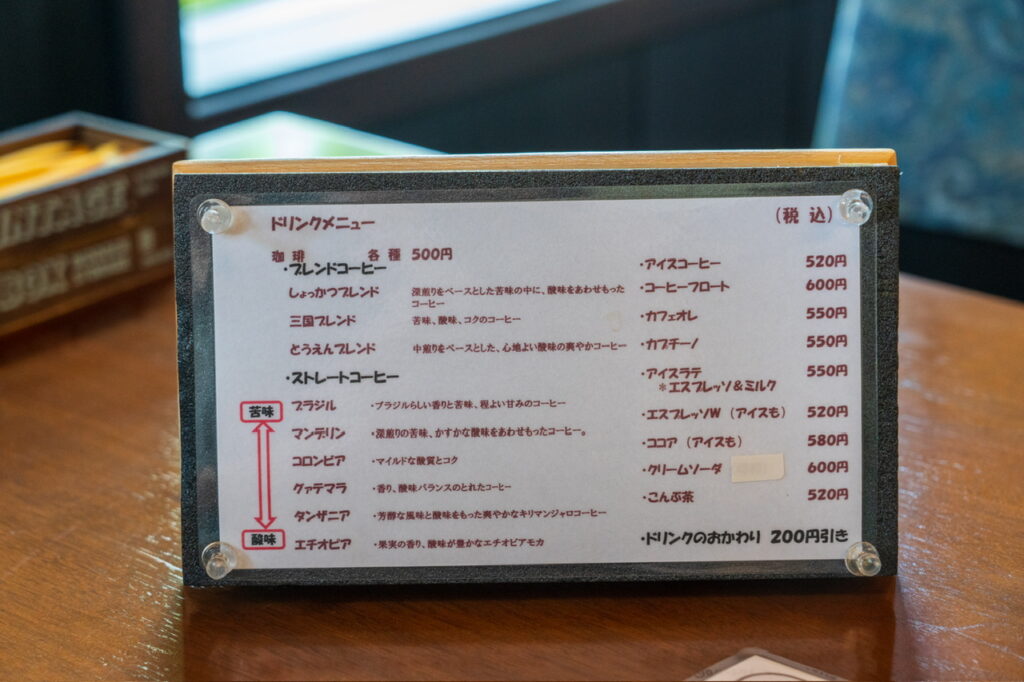 ドリンクメニュー
（税 込）
珈 琲 各 種 500円
・ブレンドコーヒー
しょっかつブレンド 深煎りをベースとした苦味の中に、酸味をあわせもったコーヒー
三国ブレンド 苦味、酸味、コクのコーヒー
とうえんブレンド 中煎りをベースとした、心地よい酸味の爽やかコーヒー
・ストレートコーヒー
苦味
ブラジル ・ブラジルらしい香りと苦味、程よい甘みのコーヒー
マンデリン ・深煎りの苦味、かすかな酸味をあわせもったコーヒー。
コロンビア ・マイルドな酸質とコク
グァテマラ ・香り、酸味バランスのとれたコーヒー
タンザニア ・芳醇な風味と酸味をもった爽やかなキリマンジャロコーヒー
酸味
エチオピア ・果実の香り、酸味が豊かなエチオピアモカ
・アイスコーヒー 520円
・コーヒーフロート 600円
・カフェオレ 550円
・カプチーノ 550円
・アイスラテ 550円
＊エスプレッソ＆ミルク
・エスプレッソW （アイスも） 520円
・ココア （アイスも） 580円
・クリームソーダ 600円
・こんぶ茶 520円
・ドリンクのおかわり 200円引き